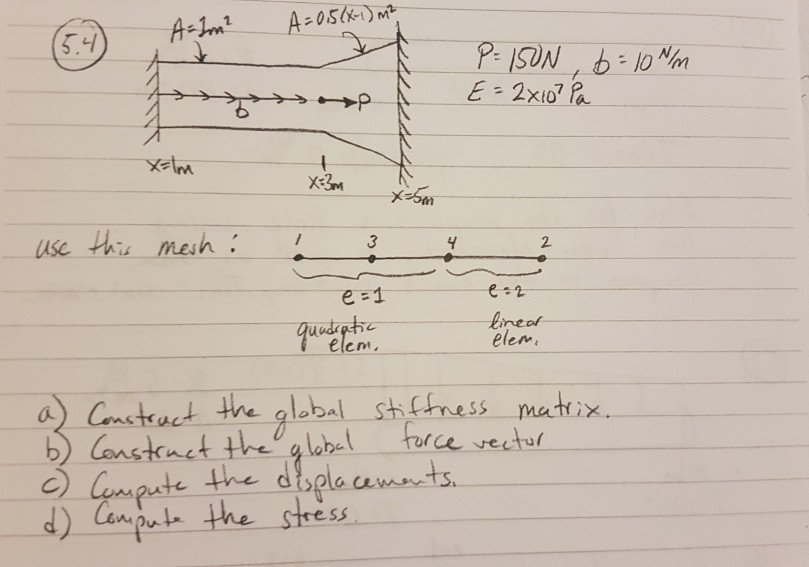 5.4
A=1m²
A=0.5(x-1)m²
P=150N, b=10 N/m
E=2x10⁷ Pa
P
b
x=1m
x=3m
x=5m
use this mesh:
1 3 4 2
e=1 e=2
quadratic elem.
linear elem.
a) Construct the global stiffness matrix.
b) Construct the global force vector
c) Compute the displacements.
d) Compute the stress.